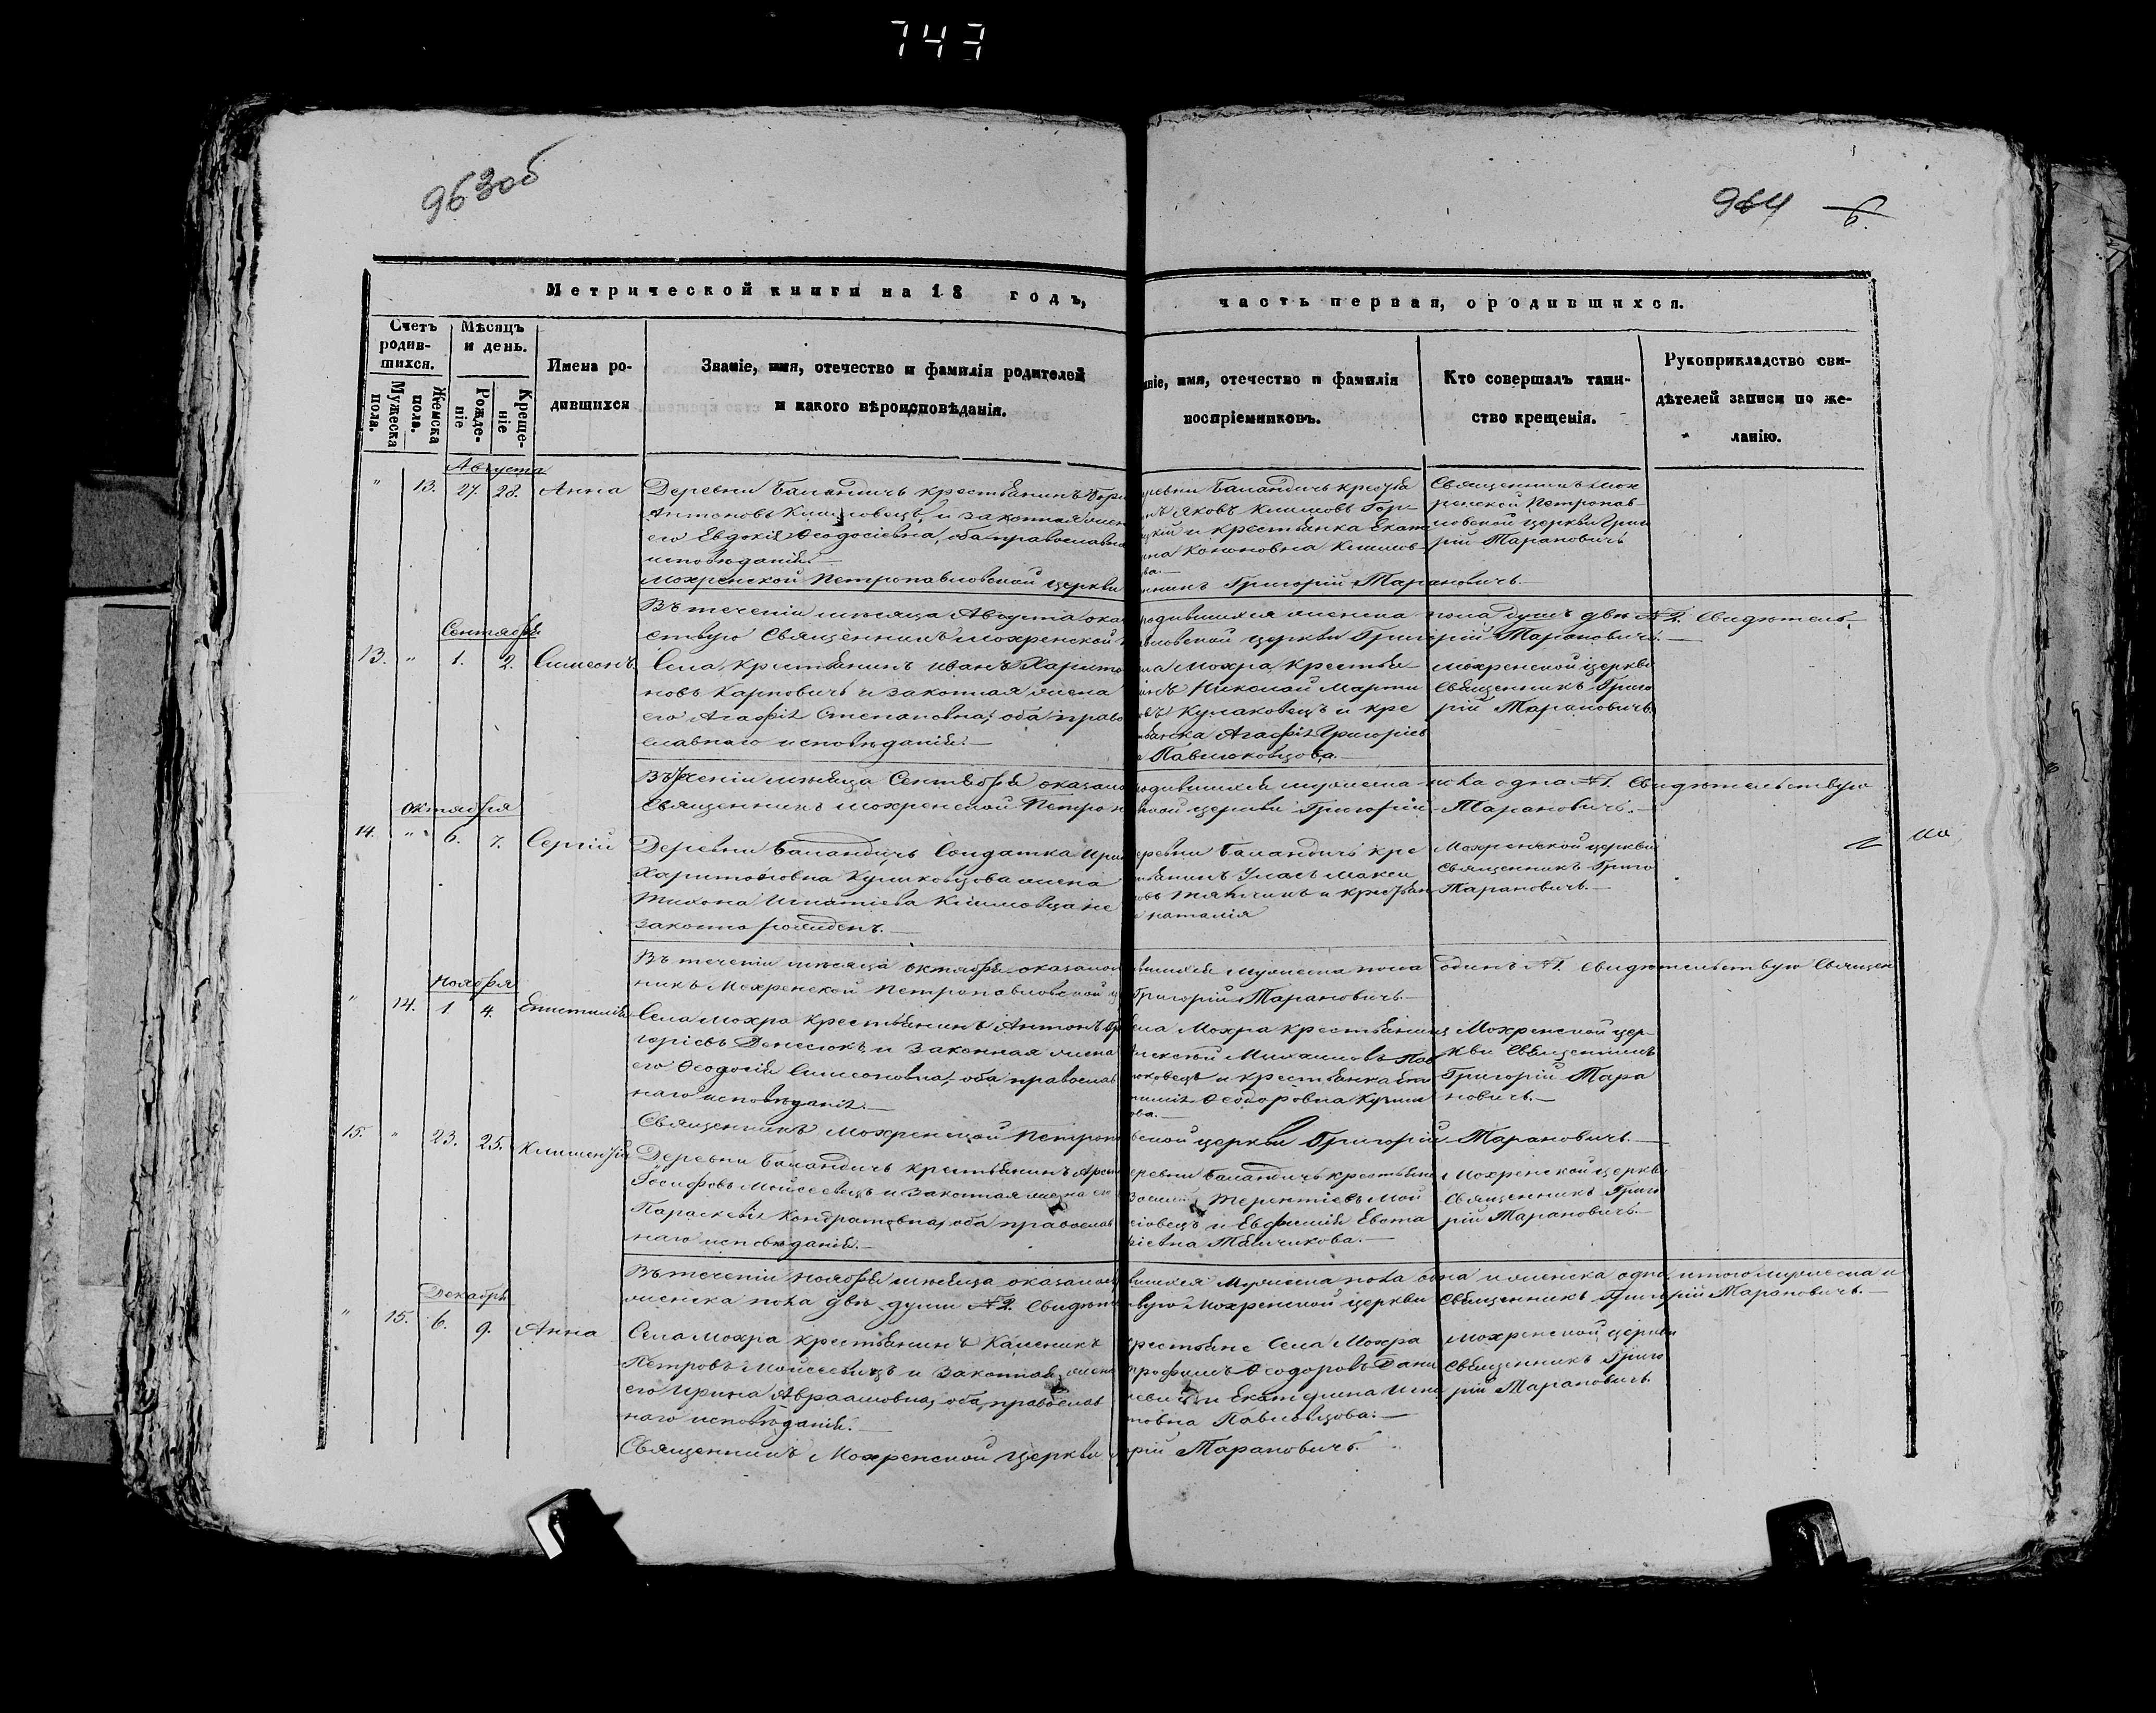 747
963об
964 6.
Метрической книги на 18 годъ,
часть первая, о родившихся.
Счетъ родив-шихся.
Мужеска пола.
Женска пола.
Мѣсяцъ и день.
Рожде-ніе
Креще-ніе
Имена ро-
дившихся
Званіе, имя, отечество и фамилія родителей
и какого вѣроисповѣданія.
ніе, имя, отечество и фамилія
воспріемниковъ.
Кто совершалъ таин-
ство крещенія.
Рукоприкладство сви-
дѣтелей записи по же-
ланію.
Августа
" 13. 27. 28. Анна
Деревни Баландичь крестьянинъ
Антоновъ Климовецъ и законная жен
его Евдокія Ѳеодосіевна, оба православна
исповѣданія.—
Мохренской Петропавловской церкви
ревни Баландичь крестья
нъ Яковъ Климовъ Гор-
цкій и крестьянка Екате
ина Кононовна Климов-
ва.—
нникъ Григорій Тарановичъ.—
Священникъ Мох
ренской Петропав-
ловской церкви Григо
рій Тарановичъ
Въ теченіи мѣсяца Августа оказ родившихся женска пола душъ двѣ №2. Свидѣтель-
ствую Священникъ Мохренской вловской церкви Григорій Тарановичъ.—
Сентября
13. " 1. 2. Симеонъ.
Села крестьянинъ Иванъ Харито
новъ Карповичъ и законная жена
его Агафія Степановна, оба право
славнаго исповѣданія.—
ла Мохра крестья
инъ Николай Марти
въ Кулаковецъ и кре
тьянка Агафія Григорьев
Павлюковцова.—
Мохренской церкви
Священникъ Григо
рій Тарановичъ.
Въ теченіи мѣсяца Сентября оказало родившихся мужеска пола одна №1. Свидѣтельствую
Священникъ Мохренской Петропа вской церкви Григорій Тарановичъ.—
Октября
14. " 6. 7. Сергій
Деревни Баландичь Солдатка Ири
Харитоновна Куликовцова жена
Тихона Игнатіева Климовца не
законно рожденъ.—
еревни Баландичь кре
тьянинъ Уласъ Макси
и крестьян
Наталія
Мохренской церкви
Священникъ Григо
Тарановичъ.—
Въ теченіи мѣсяца октября оказало вшихся мужеска пола одинъ №1. Свидѣтельствую Священ
никъ Мохренской Петропавловской ц Григорій Тарановичъ.—
Ноября
" 14. 1. 4.
Села Мохра крестьянинъ Антонъ Гри
горіевъ Денесюкъ и законная жена
его Ѳеодосія Симеоновна, оба православ
наго исповѣданія.—
ела Мохра крестьянинъ
лексѣй Михаиловъ Пав
люковецъ и крестьянка
Ѳеодоровна
ова.—
Мохренской цер-
кви Священникъ
Григорій Тара
новичъ.—
Священникъ Мохренской Петропа вской церкви Григорій Тарановичъ.—
15. " 23. 25. Климентій
Деревни Баландичь крестьянинъ Арсен
Іосифовъ Мойсеевецъ и законная жена ег
Параскевія Кондратовна, оба православ
наго исповѣданія.—
еревни Баландичь крестьяни
Терентіевъ Мой
сіовецъ и Евфимія Евста
фіевна
Мохренской церкви
Священникъ Григо
рій Тарановичъ.—
Въ теченіи ноября мѣсяца оказалось вшихся мужеска пола одна и женска одна, итого мужеска и
женска пола двѣ души №2. Свидѣте вую Мохренской церкви Священникъ Григорій Тарановичъ.—
Декабря
" 15. 6. 9. Анна
Села Мохра крестьянинъ Каленикъ
Петровъ Мойсеевецъ и законная жена
его Ирина Авраамовна, оба православ
наго исповѣданія.—
рестьяне Села Мохра
трофимъ Ѳеодоровъ Дани
левичъ и Екатерина Игна
товна Павловцова.—
Мохренской церкви
Священникъ Григо
рій Тарановичъ.
Священникъ Мохренской церкви орій Тарановичъ.